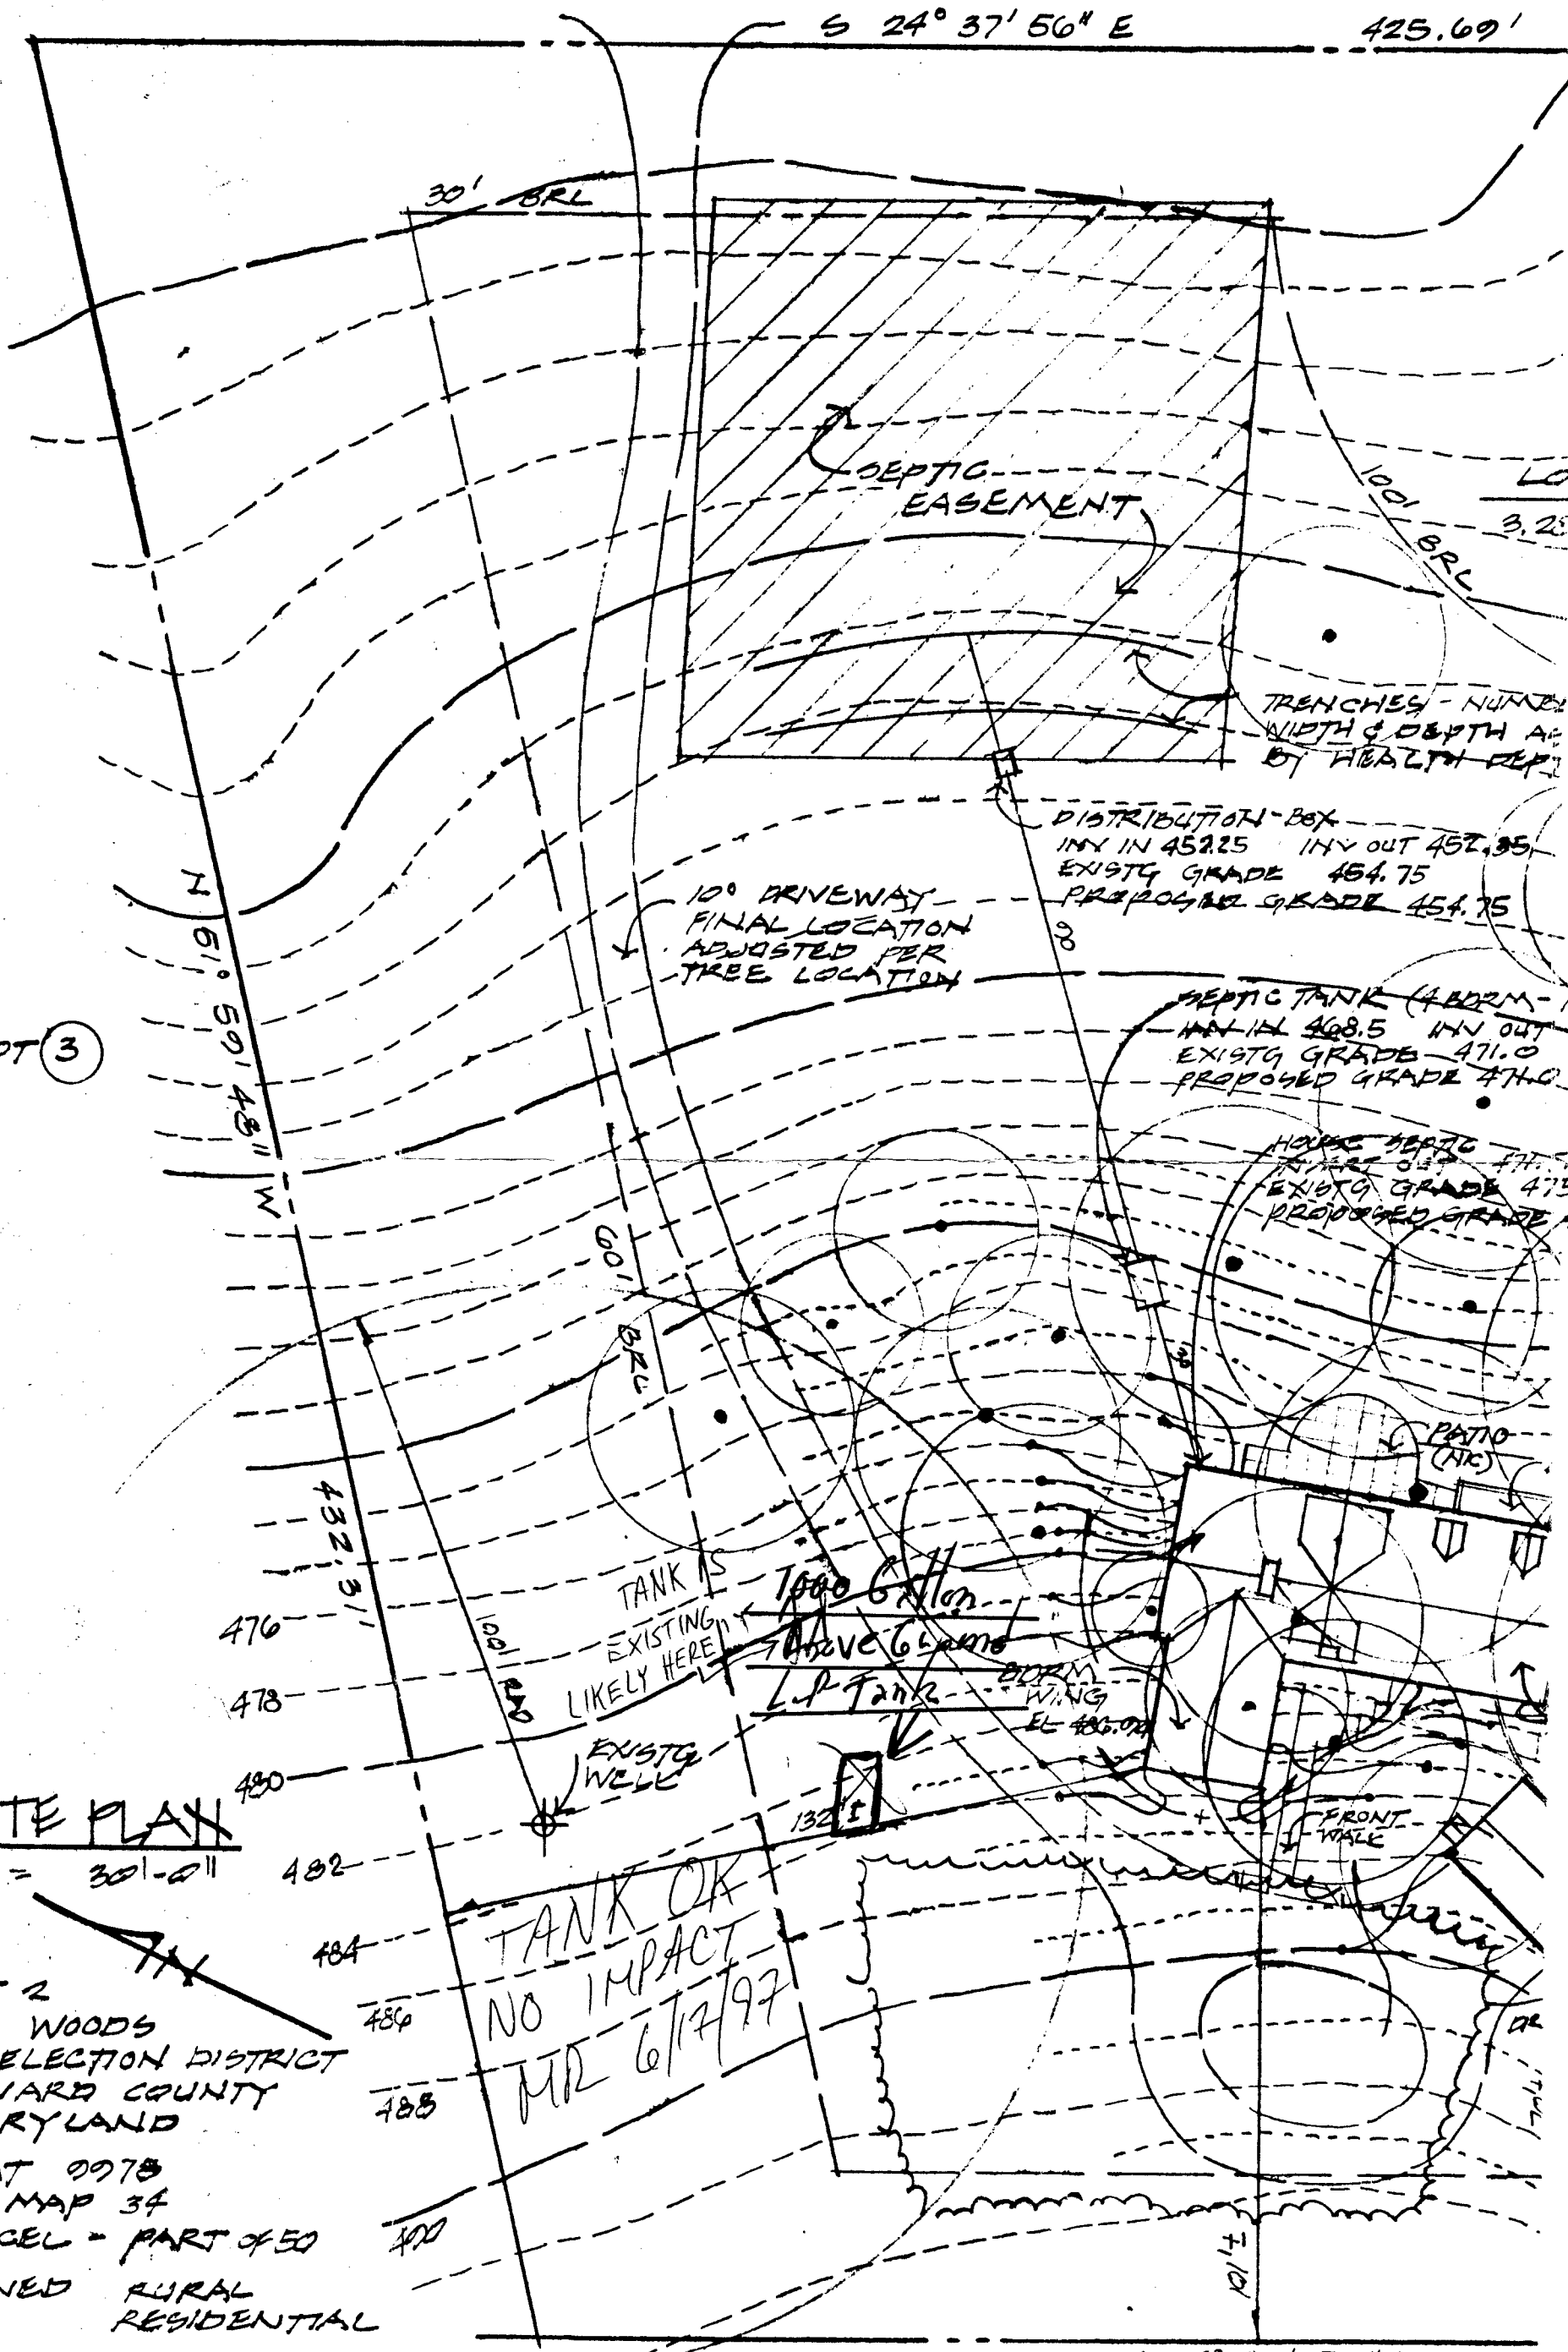 S 24° 37' 56" E
425.69'
30' BRL
SEPTIC
EASEMENT
100'
BRL
LO
3.28
TRENCHES - NUMBE
WIDTH & DEPTH AS
BY HEALTH DEPT
DISTRIBUTION BOX
INV IN 452.25 INV OUT 452.35
EXISTG GRADE 454.75
PROPOSED GRADE 454.75
10° DRIVEWAY
FINAL LOCATION
ADJUSTED PER
TREE LOCATION
SEPTIC TANK (4 BDRM-
INV IN 468.5 INV OUT
EXISTG GRADE 471.0
PROPOSED GRADE 471.0
OT 3
N 61° 59' 48" W
HOUSE SEPTIC
INVERT OUT 471.
EXISTG GRADE 475
PROPOSED GRADE
60'
BRL
PATIO
(NIC)
432.31'
TANK IS
EXISTING
LIKELY HERE
1000 Gallon
Above Ground
L.P. Tank
BDRM
WING
EL 486.00
100' RAD
EXISTG
WELL
132'±
FRONT
WALK
476
478
480
482
484
486
488
490
TE PLAN
= 30'-0"
N
TANK OK
NO IMPACT
MR 6/17/97
2
WOODS
ELECTION DISTRICT
WARD COUNTY
RYLAND
AT 9978
MAP 34
CEL - PART OF 50
NED RURAL
RESIDENTIAL